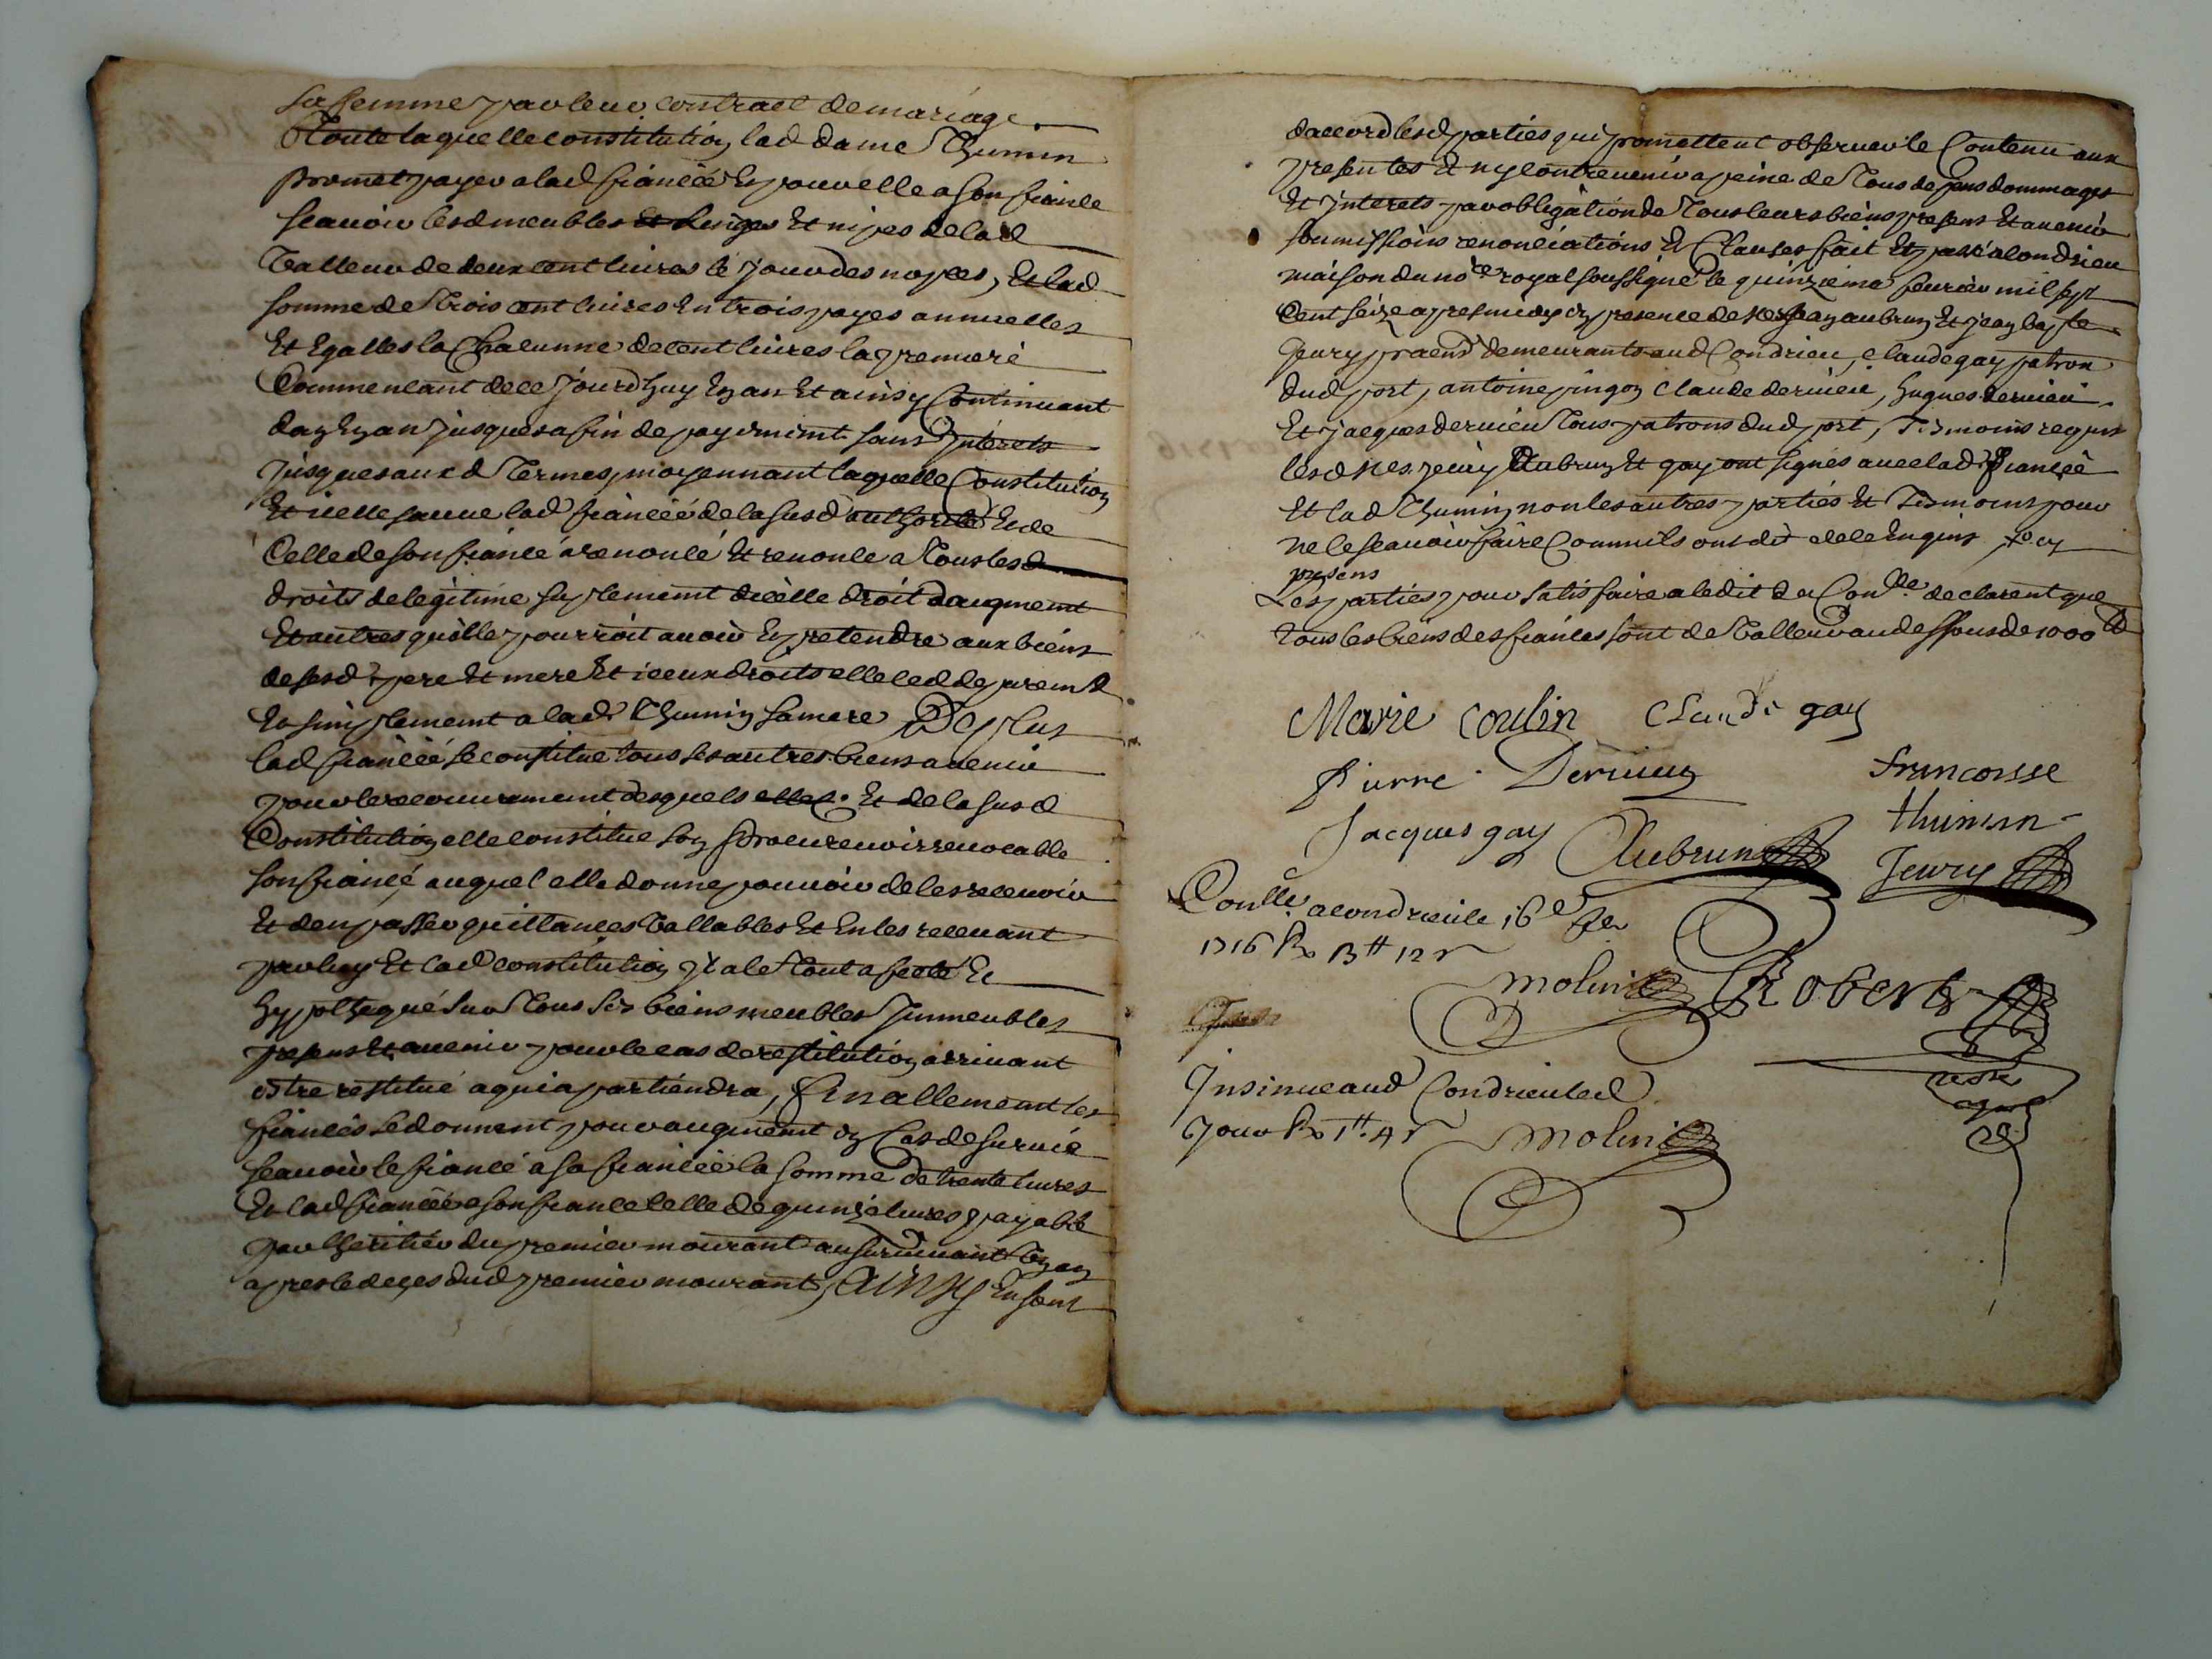 sa femme par leur contract de mariage
Toute laquelle constitution lad dame Thumin
promet payer a lad fiancéé et pour elle a son fiancé
scauoir lesd meubles et linges et nipes de lad
valleur de deux cent liures le jour des nopces, et lad
somme de trois cent liures en trois payes annuelles
et egalles la chacunne de cent liures la premiere
commencant de ce jourdhuy en an et ainsy continuant
dan en an jusques a fin de payement sans interets
jusques auxd termes, moyennant laquelle constitution
et icelle sauue lad fiancéé de la susd authorité et de
celle de son fiancé a renoncé et renonce a tous lesd
droits de legitime suplement dicelle droit daugment
et autres quelle pourroit auoir et pretendre aux biens
de sesd pere et mere et iceux droits elle ced
et simplement a lad Thumin sa mere De plus
lad fiancéé se constitue tous ses autres biens a uenir
pour le recouurement desquels et de la susd
constitution elle constitue son procureur irreuocable
son fiancé auquel elle donne pouuoir de les receuoir
et den passer quittances vallables et en les receuant
par luy et lad constitution il a le tout afecté et
hypothequé sur tous ses biens meubles immeubles
presens et auenir pour le cas de restitution arriuant
estre restitué a qui apartiendra, finallement les
fiancés se donnent pour augment en cas de suruie
scauoir le fiancé a sa fiancéé la somme de trente liures
et lad fiancéé a son fiancé celle de quinze liures payable
par lheritier du premier mourant au suruiuant un an
apres le deces dud premier mourant, Ainsy en sont
daccord lesd parties qui promettent obseruer le contenu aux
presentes et ny contreuenir a peine de tous depens dommages
et interets par obligation de tous leurs biens presens et auenir
soumissions renonciations et clauses fait et passé a condrieu
maison du nore royal soussigné le quinzieme feurier mil sept
cent seize apres midy en presence de jean aubrun et jean bapte
Jeury demeurants aud Condrieu, claude gay patron
dud port, antoine pingon claude deruieu, hugues deruieu
et jacques deruieu tous patrons dud port, tesmoins requis
lesd jeury Aubrun et gay ont signés auec lad fiancéé
et lad Thumin non les autres parties et tesmoins pour
ne le scauoir faire comm ils ont dit de ce enquis
presens
Les parties pour satisfaire a ledit du declarent que
tous les biens des fiancés sont de valleur au dessous de 1000 tt
Marie Coulin Claude gay
Pierre Deruieu francoisse
thumin
Jacques gay Aubrun Jeury
Conlle a condrieu le 16e fer
1716 Rx 13 tt 12 s
Molin Robert
Insinue aud Condrieu led
jour Rx 1 tt 4 s Molin